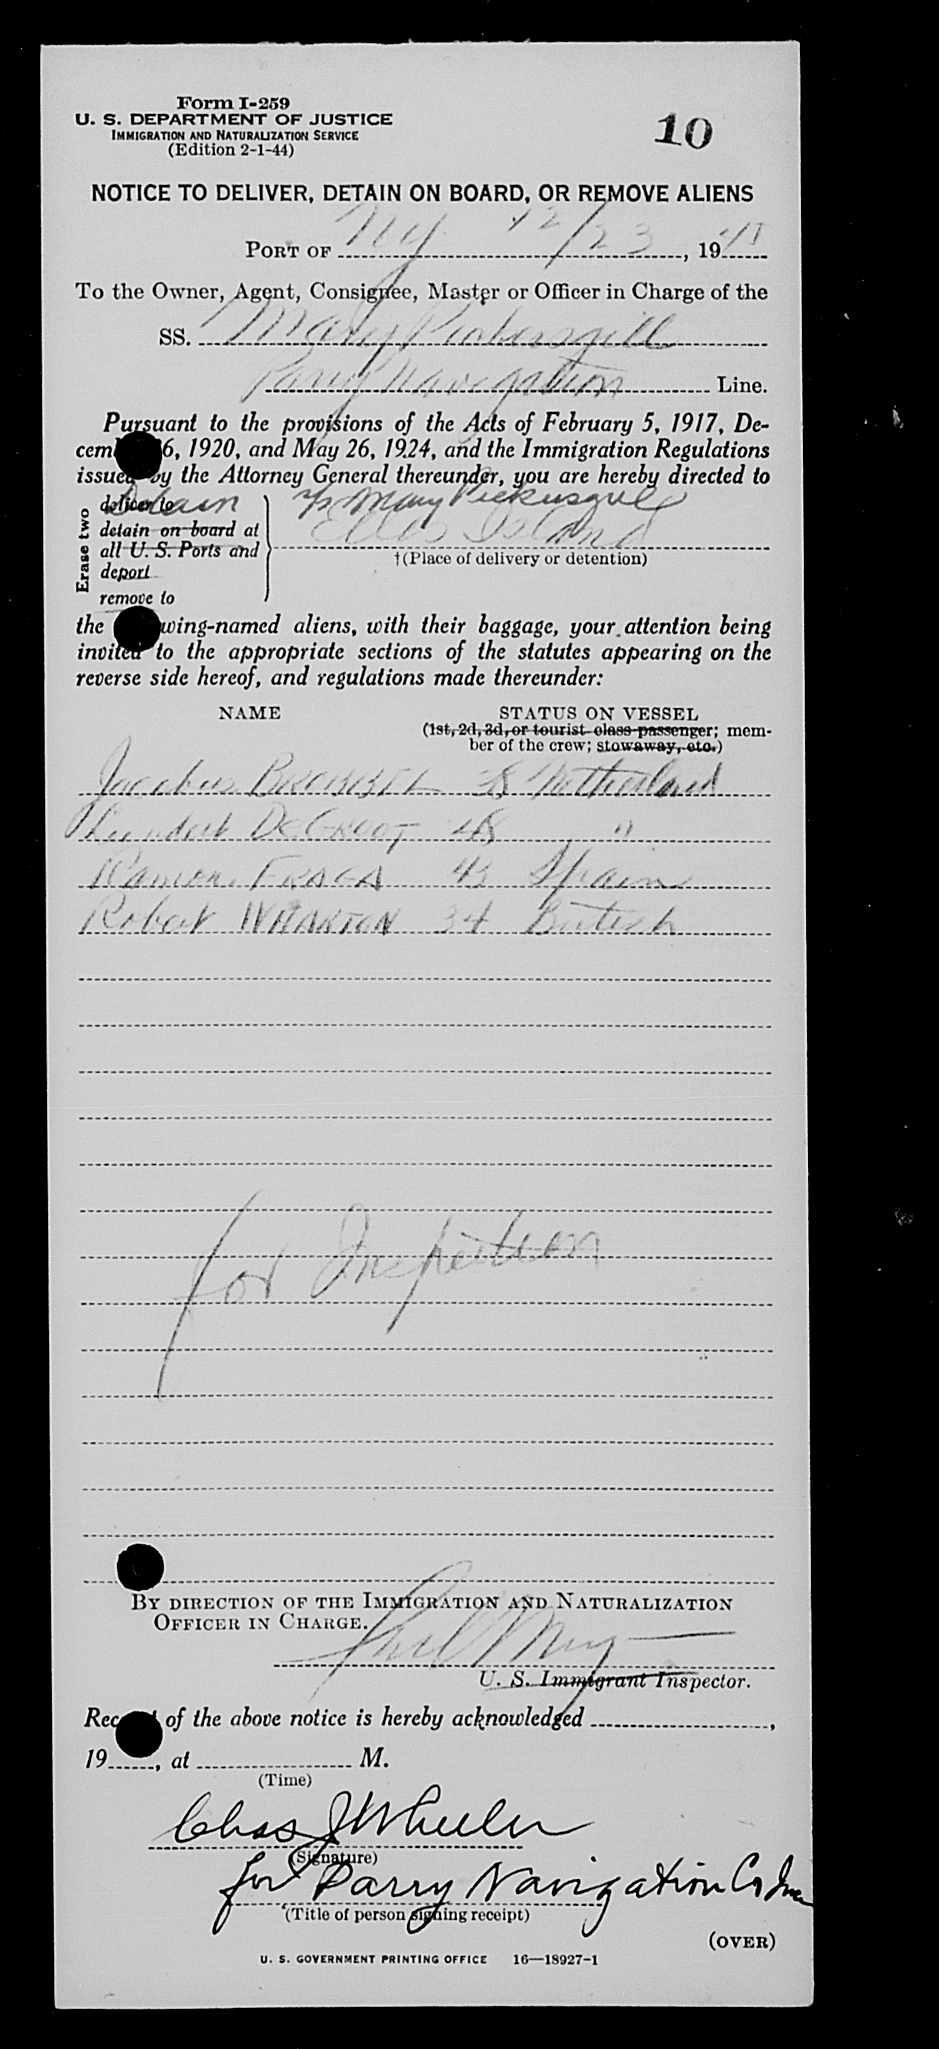 Form I-259
U. S. DEPARTMENT OF JUSTICE
IMMIGRATION AND NATURALIZATION SERVICE
(Edition 2-1-44)
10
NOTICE TO DELIVER, DETAIN ON BOARD, OR REMOVE ALIENS
PORT OF NY 12/23, 19
To the Owner, Agent, Consignee, Master or Officer in Charge of the
SS. Mary Pickersgill
Parry Navigation Line.
Pursuant to the provisions of the Acts of February 5, 1917, De-
cem 6, 1920, and May 26, 1924, and the Immigration Regulations
issued by the Attorney General thereunder, you are hereby directed to
Erase two
deliver to Detain
detain on board at
all U. S. Ports and
deport
remove to
Mary
Ellis Island
†(Place of delivery or detention)
the wing-named aliens, with their baggage, your attention being
invited to the appropriate sections of the statutes appearing on the
reverse side hereof, and regulations made thereunder:
NAME STATUS ON VESSEL
(1st, 2d, 3d, or tourist class passenger; mem-
ber of the crew; stowaway, etc.)
Jacobus Netherland
DEGROOT 48 "
Ramon FRAGA 43 Spain
Robert WHARTON 34 British
for Inspection
BY DIRECTION OF THE IMMIGRATION AND NATURALIZATION
OFFICER IN CHARGE.
U. S. Immigrant Inspector.
Rec of the above notice is hereby acknowledged ,
19 , at M.
(Time)
Chas J Wheeler
(Signature)
for Parry Navigation Co Inc
(Title of person signing receipt)
(OVER)
U. S. GOVERNMENT PRINTING OFFICE 16—18927-1